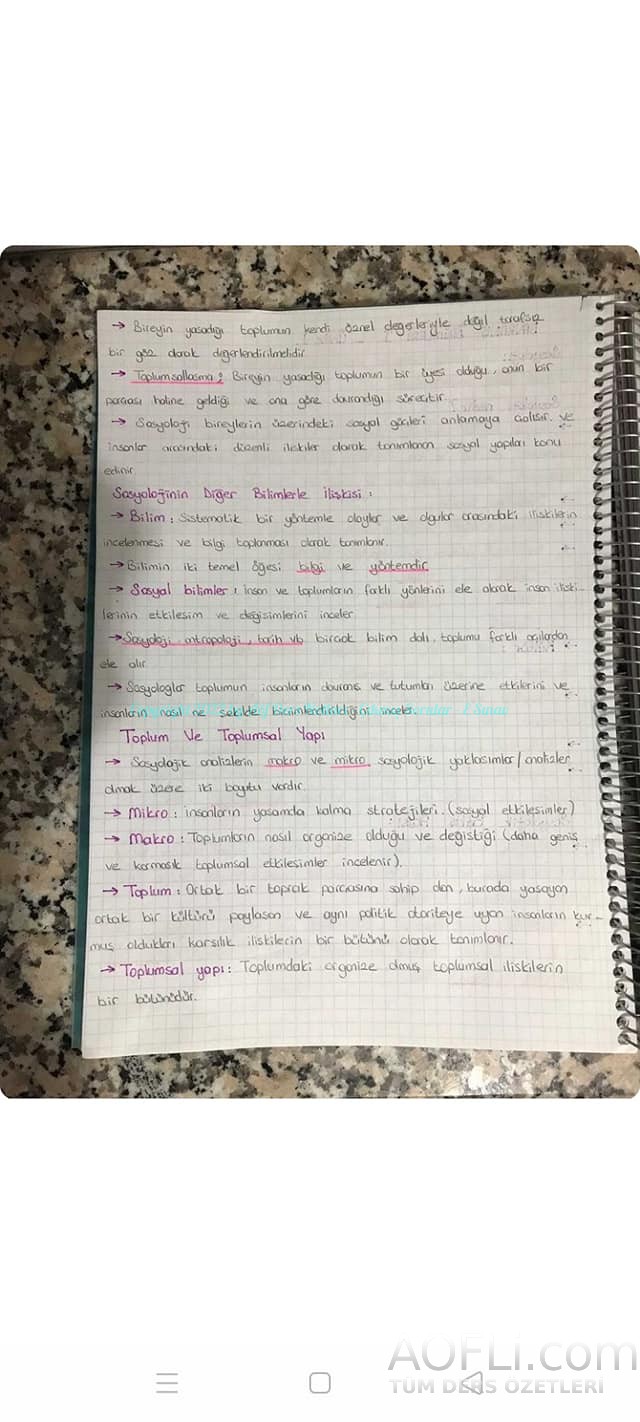 → Bireyin yaşadığı toplumun kendi özel değerleriyle değil tarafsız
bir göz olarak değerlendirilmelidir.
→ Toplumsallaşma: Bireyin yaşadığı toplumun bir üyesi olduğu, onun bir
parçası haline geldiği ve ona göre davrandığı süreçtir.
→ Sosyoloji bireylerin üzerindeki sosyal güçleri anlamaya çalışır. ve
insanlar arasındaki düzenli ilişkiler olarak tanımlanan sosyal yapıları konu
edinir.
Sosyolojinin Diğer Bilimlerle İlişkisi:
→ Bilim: Sistematik bir yöntemle olaylar ve olgular arasındaki ilişkilerin
incelenmesi ve bilgi toplanması olarak tanımlanır.
→ Bilimin iki temel öğesi bilgi ve yöntemdir.
→ Sosyal bilimler: insan ve toplumların farklı yönlerini ele alarak insan ilişki-
lerinin etkileşim ve değişimlerini inceler.
→ Sosyoloji, antropoloji, tarih vb. birçok bilim dalı, toplumu farklı açılardan
ele alır.
→ Sosyologlar toplumun insanların davranış ve tutumları üzerine etkilerini ve
insanların nasıl ne şekilde biçimlendirildiğini inceler.
Toplum Ve Toplumsal Yapı
→ Sosyolojik analizlerin makro ve mikro sosyolojik yaklaşımlar/analizler
olmak üzere iki boyutu vardır.
→ Mikro: insanların yaşamda kalma stratejileri. (sosyal etkileşimler)
→ Makro: Toplumların nasıl organize olduğu ve değiştiği (daha geniş
ve karmaşık toplumsal etkileşimler incelenir).
→ Toplum: Ortak bir toprak parçasına sahip olan, burada yaşayan
ortak bir kültürü paylaşan ve aynı politik otoriteye uyan insanların kur-
muş oldukları karşılık ilişkilerin bir bütünü olarak tanımlanır.
→ Toplumsal yapı: Toplumdaki organize olmuş toplumsal ilişkilerin
bir bütünüdür.
AOFLi.com
TÜM DERS ÖZETLERİ